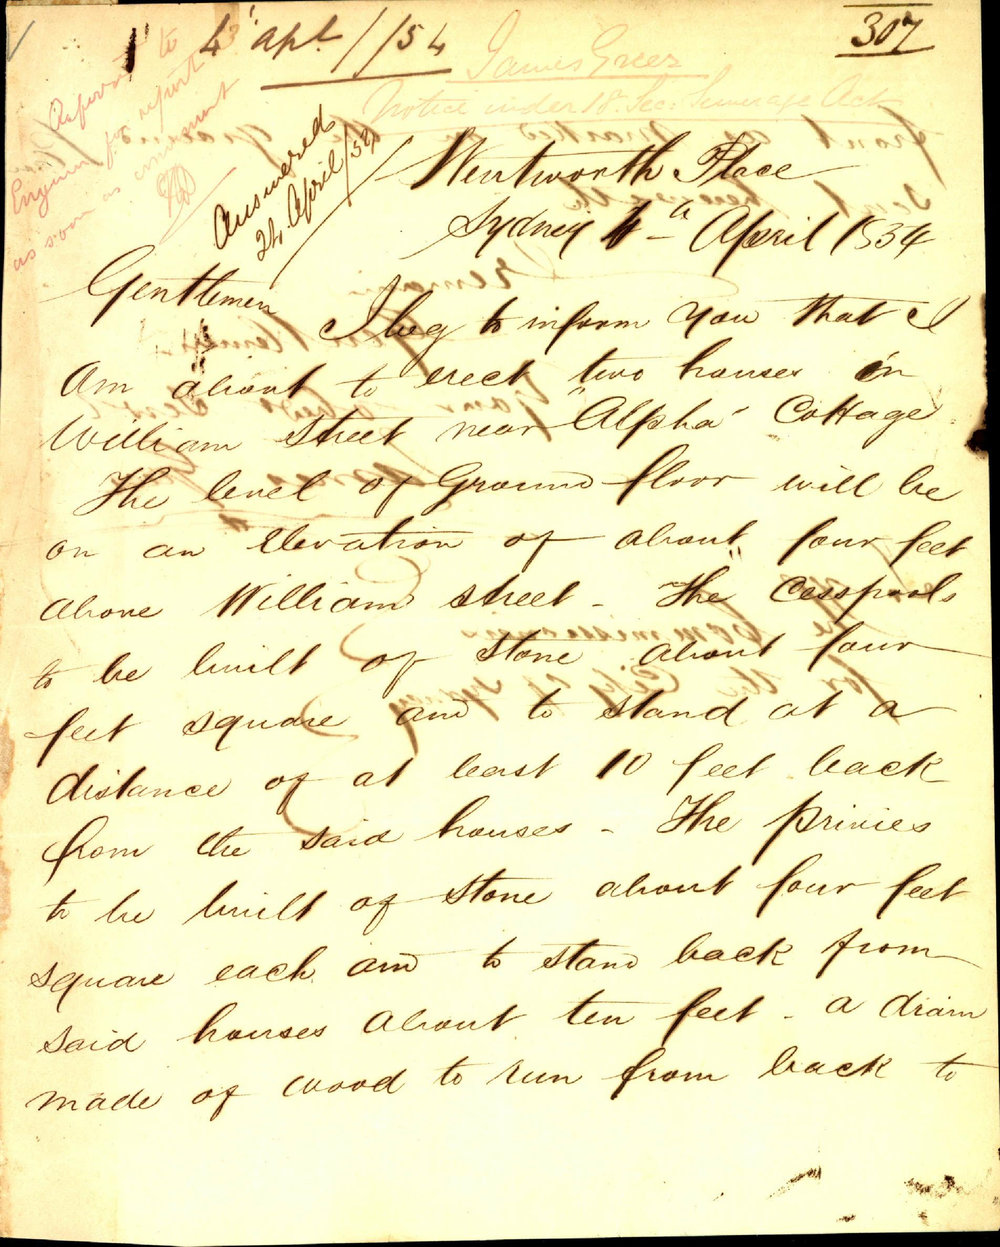 4 apl //54
307
James Greer
Notice under 18. Sec: Sewerage Act
to
Engineer for report
as soon as convenient
Answered
24 April/54
Wentworth Place
Sydney 4th April 1854
Gentlemen
I beg to inform you that I
am about to erect two houses in
William Street near "Alpha" Cottage
The level of Ground floor will be
on an elevation of about four feet
above William street - The "Cesspools
to be built of stone about four
feet square and to stand at a
distance of at least 10 feet back
from the said houses - The privies
to be built of stone about four feet
square each and to stand back from
said houses about ten feet - a drain
made of wood to run from back to